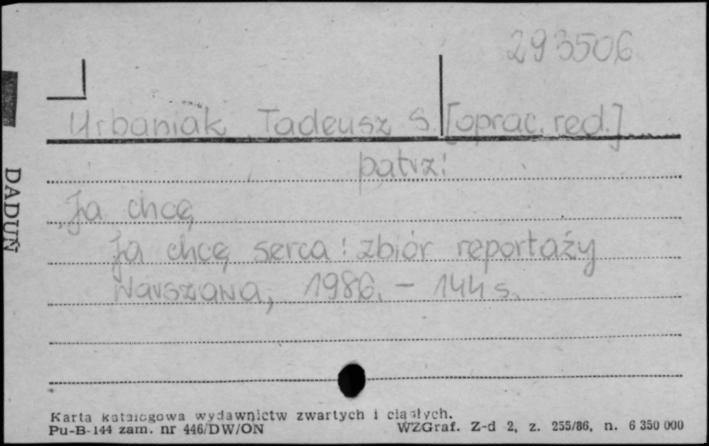 293506
Urbaniak, Tadeusz S. [oprac. red.]
patrz:
Ja chcę
Ja chcę serca: zbiór reportaży
Warszawa, 1986. – 144 s.
DADUŃ
Karta katalogowa wydawnictw zwartych i ciągłych.
Pu-B-144 zam. nr 446/DW/ON
WZGraf. Z-d 2, z. 255/86, n. 6 350 000